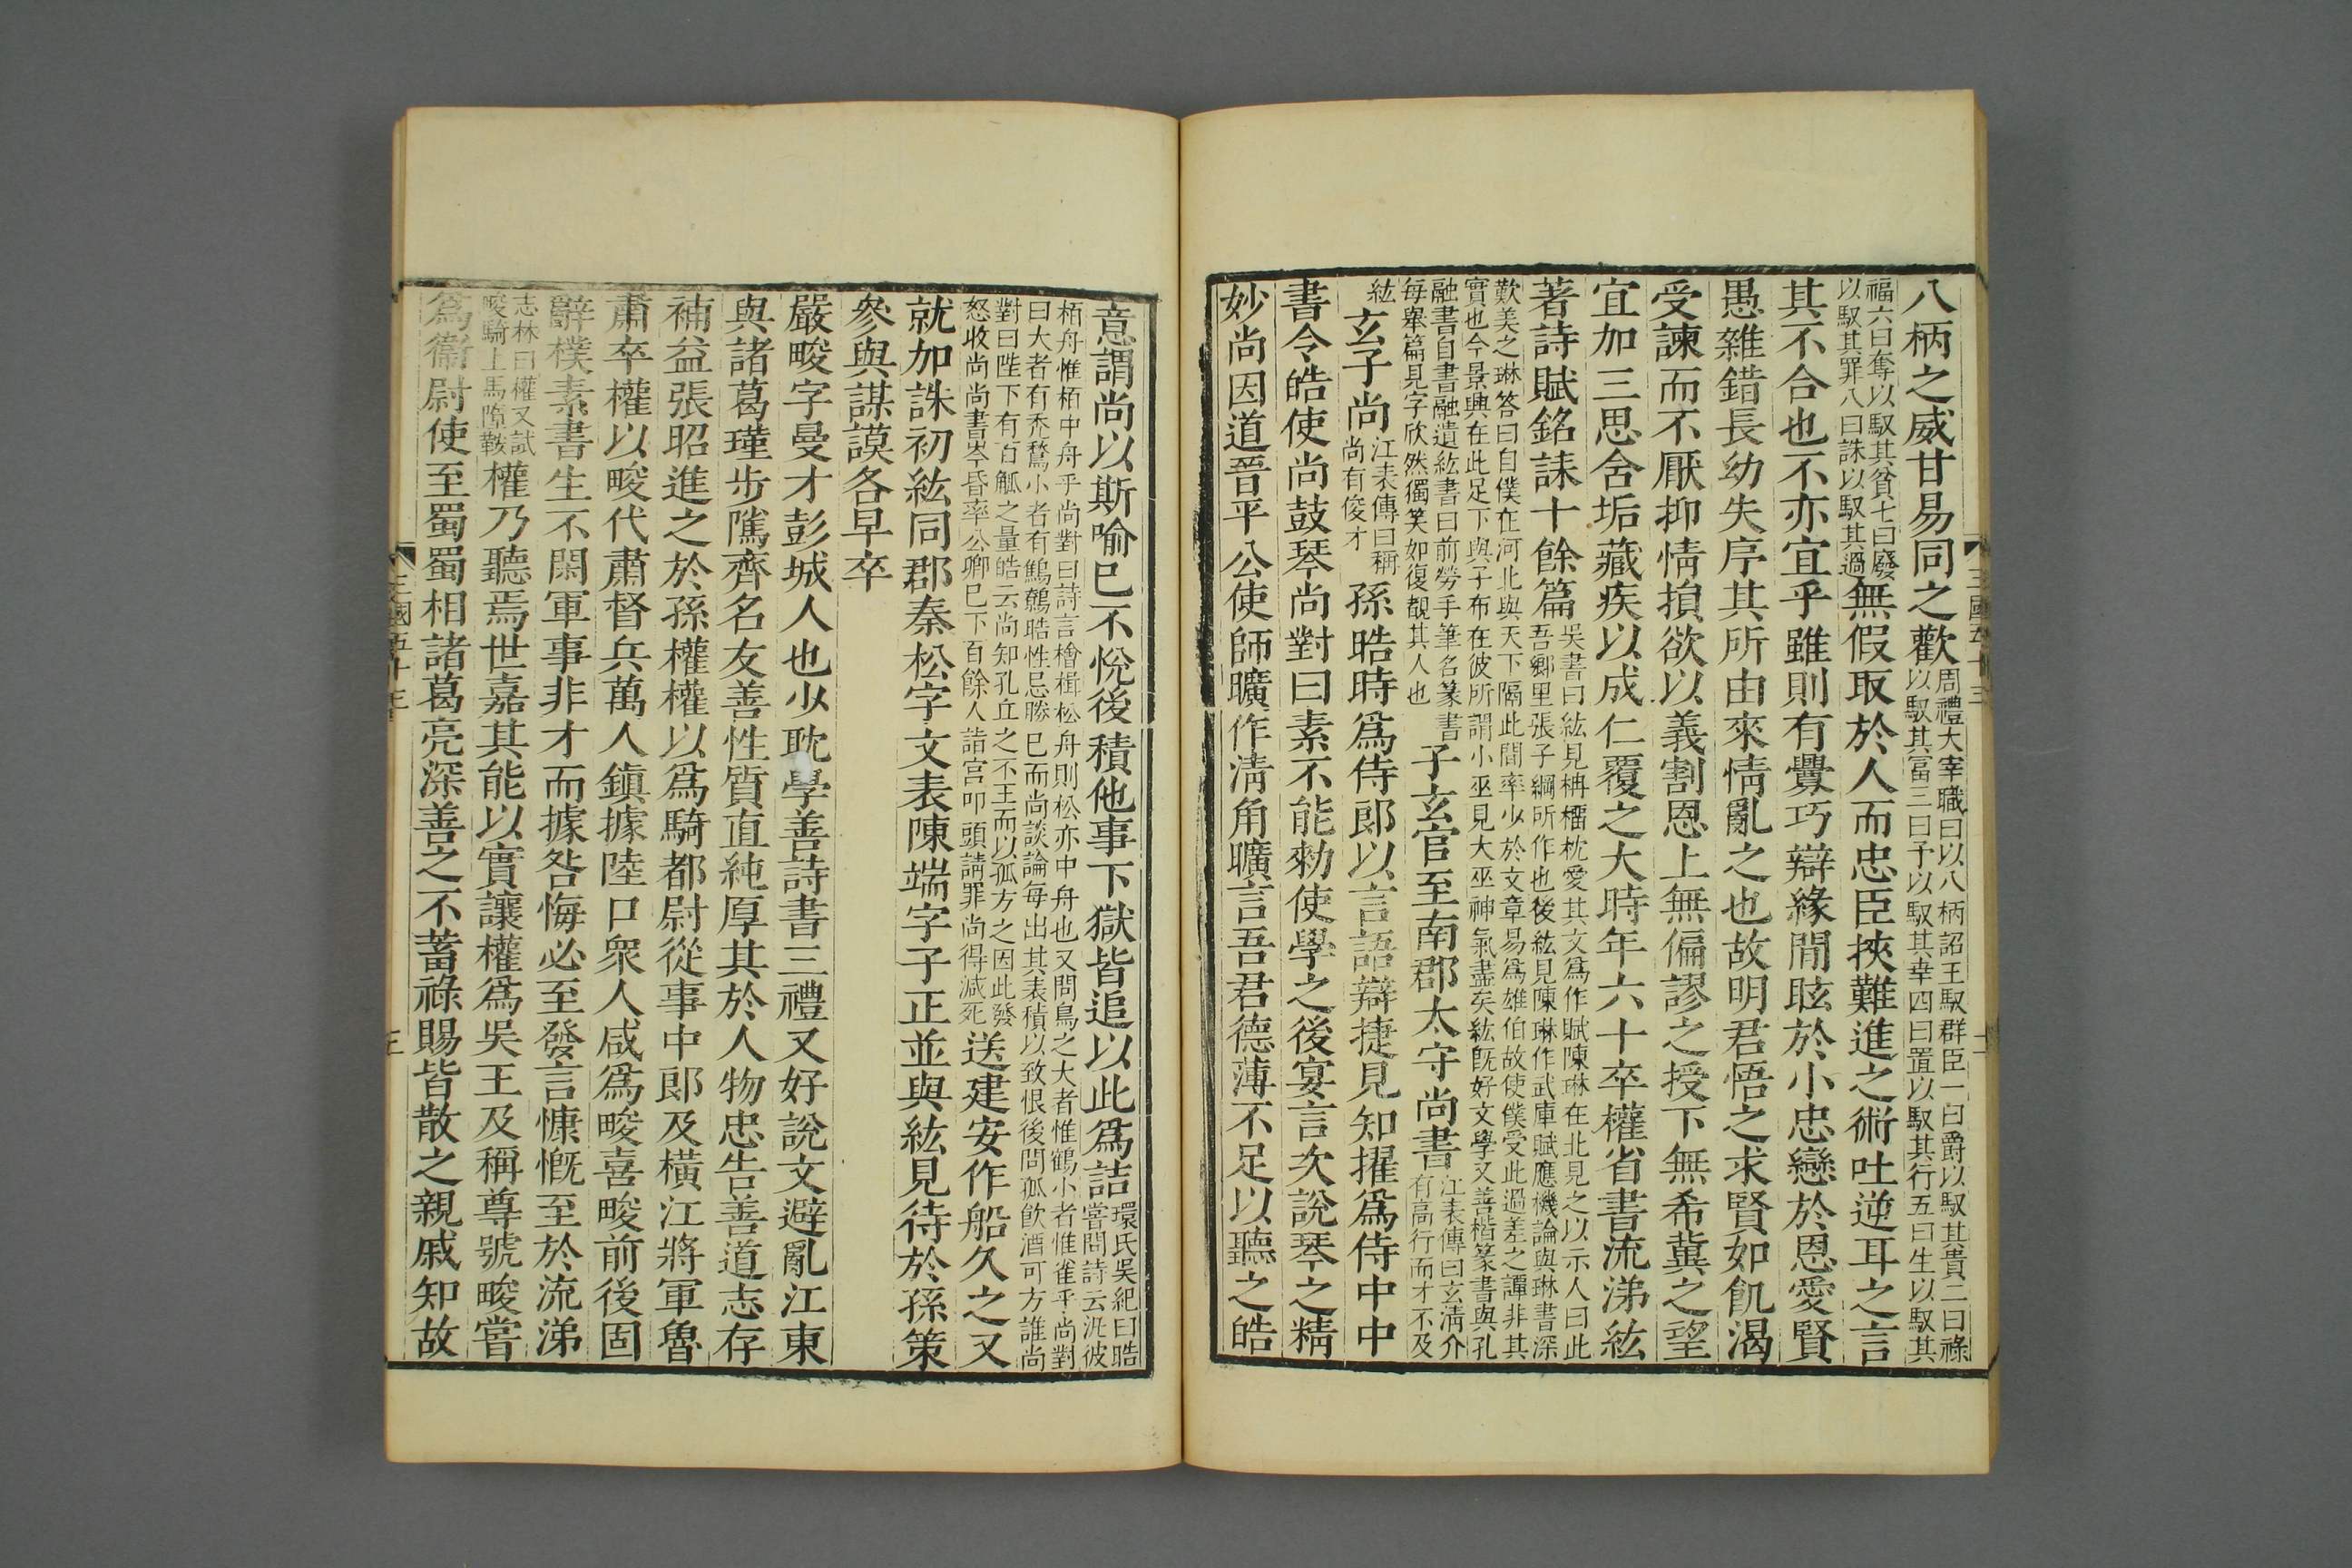 八柄之威甘易同之歡周禮大宰職曰以八柄詔王馭群臣一曰爵以馭其貴二曰祿以馭其富三曰予以馭其幸四曰置以馭其行五曰生以馭其
福六曰奪以馭其貧七曰廢以馭其罪八曰誅以馭其過無假取於人而忠臣挾難進之術吐逆耳之言
其不合也不亦宜乎雖則有釁巧辯緣間眩於小忠戀於恩愛賢
愚雜錯長幼失序其所由來情亂之也故明君悟之求賢如飢渴
受諫而不厭抑情損欲以義割恩上無偏謬之授下無希冀之望
宜加三思含垢藏疾以成仁覆之大時年六十卒權省書流涕紘
著詩賦銘誄十餘篇吳書曰紘見柟榴枕愛其文爲作賦陳琳在北見之以示人曰此吾鄉里張子綱所作也後紘見陳琳作武庫賦應機論與琳書深
歎美之琳答曰自僕在河北與天下隔此間率少於文章易爲雄伯故使僕受此過差之譚非其實也今景興在此足下與子布在彼所謂小巫見大巫神氣盡矣紘旣好文學又善楷篆書與孔
融書自書融遺紘書曰前勞手筆名篆書每舉篇見字欣然獨笑如復覩其人也子玄官至南郡太守尚書江表傳曰玄清介有高行而才不及
紘玄子尚江表傳曰稱尚有俊才孫晧時爲侍郎以言語辯捷見知擢爲侍中中
書令皓使尚鼓琴尚對曰素不能勑使學之後宴言次說琴之精
妙尚因道晉平公使師曠作清角曠言吾君德薄不足以聽之皓
三國五十三
二
意謂尚以斯喻巳不悅後積他事下獄皆追以此爲詰環氏吳紀曰晧嘗問詩云汎彼
栢舟惟栢中舟乎尚對曰詩言檜楫松舟則松亦中舟也又問鳥之大者惟鶴小者惟雀乎尚對曰大者有禿鶖小者有鷦鷯晧性忌勝巳而尚談論每出其表積以致恨後問孤飮酒可方誰尚
對曰陛下有百觚之量皓云尚知孔丘之不王而以孤方之因此發怒收尚尚書岑昏率公卿巳下百餘人詣宮叩頭請罪尚得減死送建安作船久之又
就加誅初紘同郡秦松字文表陳端字子正並與紘見待於孫策
參與謀謨各早卒
嚴畯字曼才彭城人也少耽學善詩書三禮又好說文避亂江東
與諸葛瑾步騭齊名友善性質直純厚其於人物忠告善道志存
補益張昭進之於孫權權以爲騎都尉從事中郎及橫江將軍魯
肅卒權以畯代肅督兵萬人鎭據陸口衆人咸爲畯喜畯前後固
辭樸素書生不閑軍事非才而據咎悔必至發言慷慨至於流涕
志林曰權又試畯騎上馬墮鞍權乃聽焉世嘉其能以實讓權爲吳王及稱尊號畯嘗
爲衞尉使至蜀蜀相諸葛亮深善之不蓄祿賜皆散之親戚知故
三國五十三
三